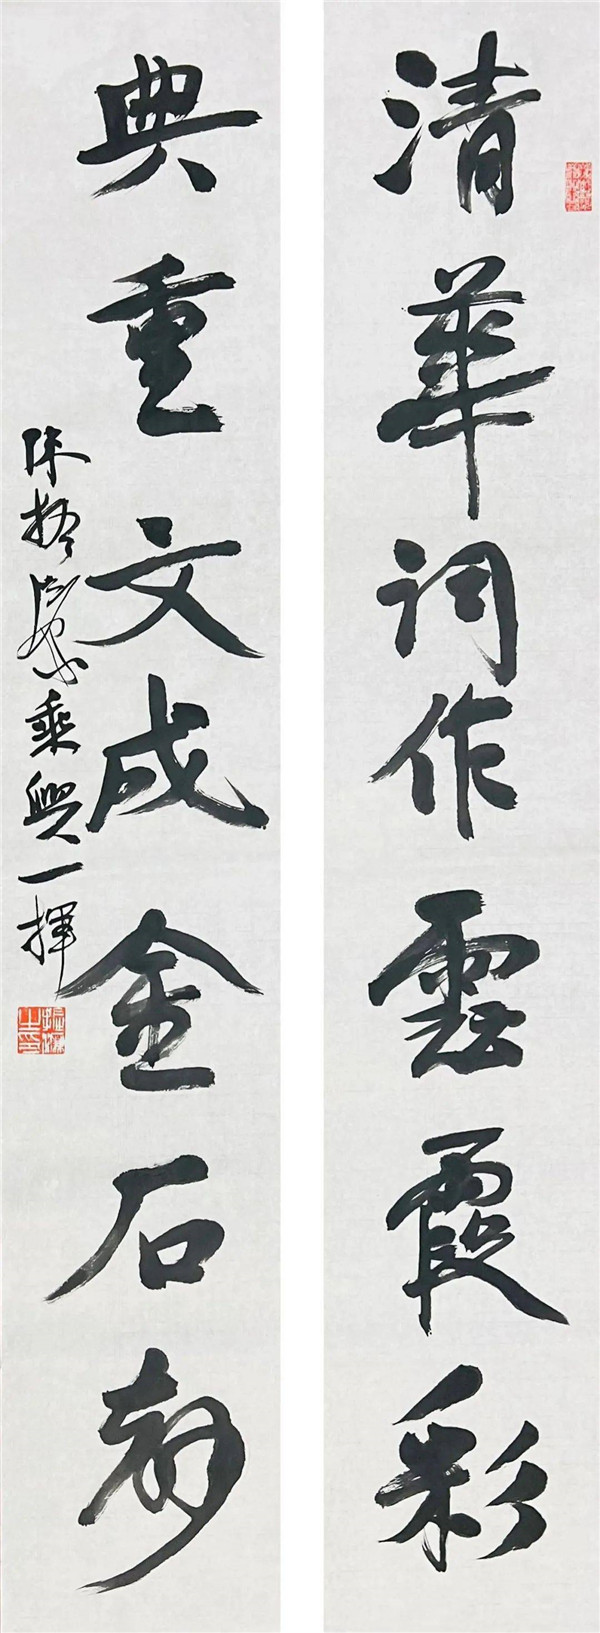 清華詞作雲霞彩
典重文成金石聲
陳振濂乘興一揮